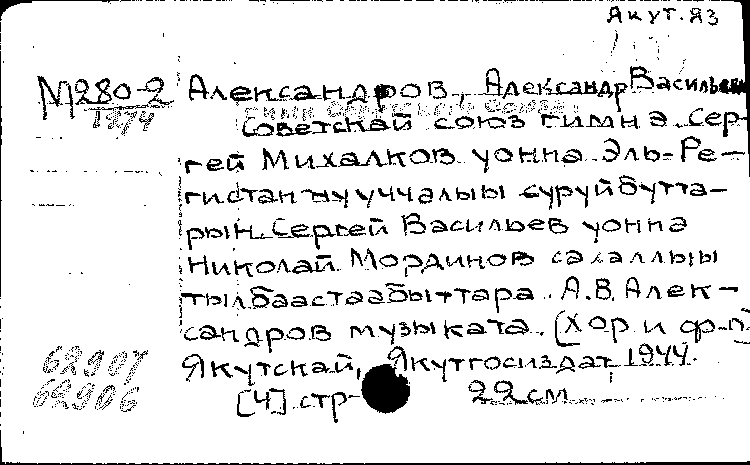 Якут. яз
М280-2 Александров, Александр Васильевич
1274 Гимн Советского Союза
Советскай союз гимнэ. Сер-
гей Михалков уонна Эль-Ре-
гистан нууччалыы суруйбутта-
рын Сергей Васильев уонна
Николай Мординов сахалыы
тылбаастаабыттара. А.В. Алек-
сандров музыката. (Хор и ф-п)
Якутскай, Якутгосиздат, 1944.
62907
[4] стр- 22 см
62906